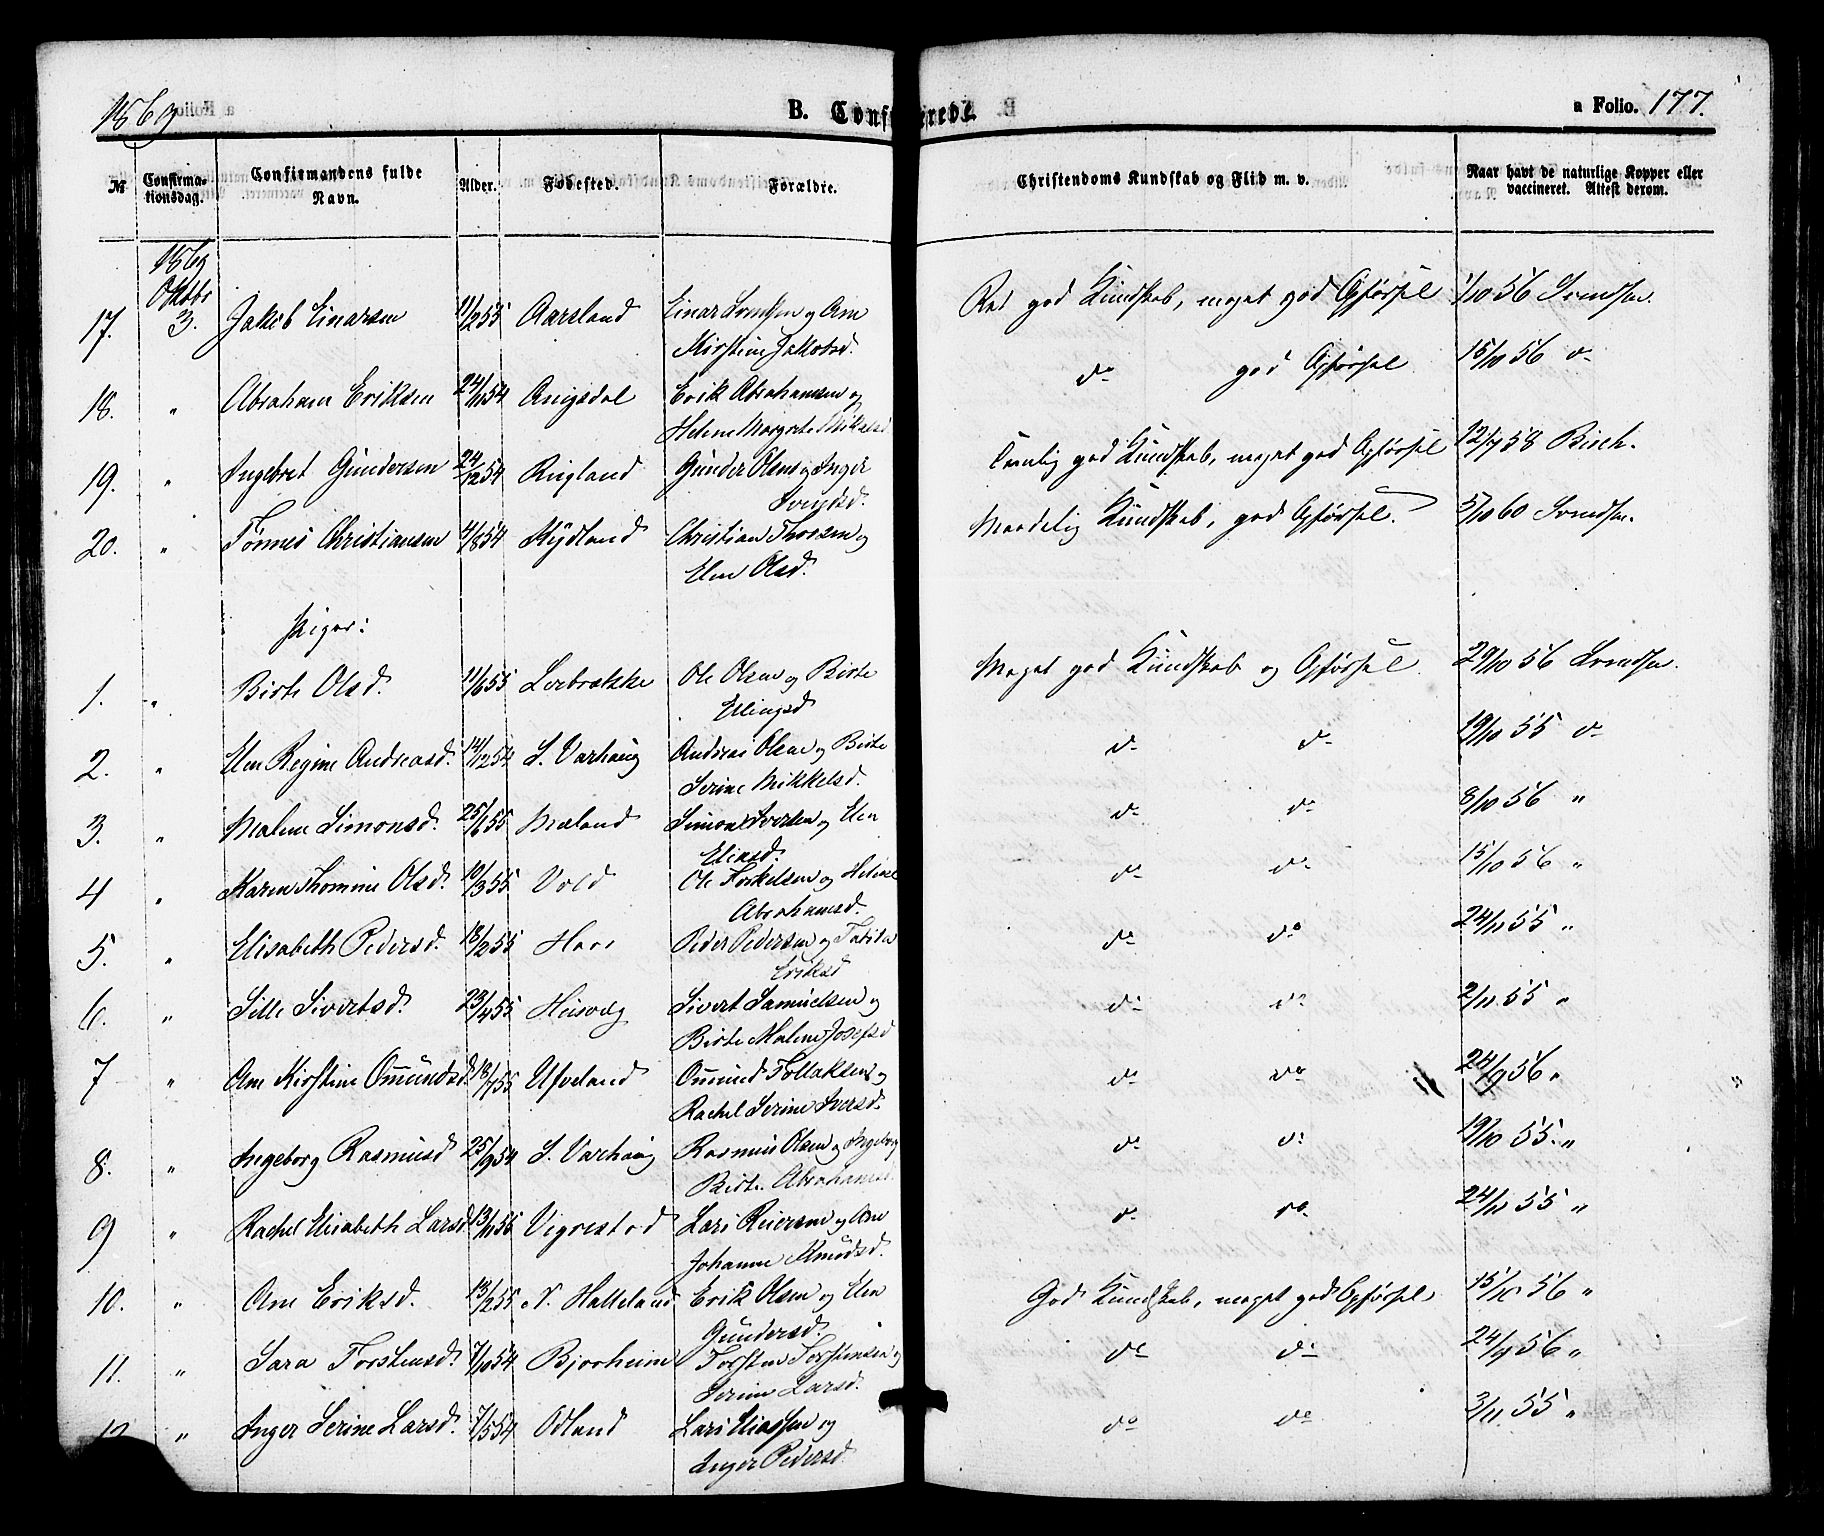 1869
B. Confirmerede.
a Folio. 177.
№ Confirma-tionsdag. Confirmandens fulde Navn. Alder. Fødested. Forældre. Christendoms Kundskab og Flid m. v. Naar havt de naturlige Kopper eller vaccineret. Attest derom.
1869
Oktbr
17. 3. Jakob Einarsen 11/2 55 Aarsland Einar Svendsen og Ane
Kirstine Jakobsd.
god Kundskab, meget god Opførsel 1/10 56 Svendsen.
18. " Abraham Eriksen 24/11 54 Erik Abrahamsen og
Helene Margrete Mikelsd
do god Opførsel 15/10 56 do
19. " Ingebret Gundersen 24/12 54 Ringland Gunder Olsen og Inger
Svendsd.
Temlig god Kundskab, meget god Opførsel 12/7 58 Birch.
20. " Tønnes Christiansen 4/8 54 Kydland Christian Thorsen og
Elen Olsd.
Maadelig Kundskab, god Opførsel. 5/10 60 Svendsen.
Piger:
1. " Birte Olsd. 11/6 55 Lerbrække Ole Olsen og Birte
Elingsd
Meget god Kundskab og Opførsel. 29/10 56 Svendsen.
2. " Elen Regine Andreasd. 14/12 54 S. Varhaug Andreas Olsen og Birte
Serine Mikkelsd.
do do 19/10 55 do
3. " Malene Simonsd. 25/6 55 Mæland Simon Iversen og Elen
Eliasd.
do do 8/10 56 "
4 " Karen Thomine Olsd. 10/3 55 Vold Ole Torkelsen og Helene
Abrahamsd.
do do 15/10 56 "
5. " Elisabeth Pedersd. 18/2 55 Haar Peder Pedersen og Tabita
Eriksd
do do 24/11 55 "
6. " Sille Sivertsd. 23/4 55 Husveg Sivert Samuelsen og
Birte Malene Josefsd
do do 2/11 55 "
7 " Ane Kirstine Omundsd. 18/7 55 Ueland Omund Tollaksen og
Rachel Serine Iversd.
do do 24/9 56 "
8. " Ingeborg Rasmusd 25/9 54 S. Varhaug Rasmus Olsen og Ingeborg
Birte Abrahamsd.
do do 19/10 55. "
9 " Rachel Elisabeth Larsd. 13/11 55 Vigrestad Lars Reiersen og Ane
Johanne Knudsd.
do do 24/11 55 "
10. " Ane Eriksd. 13/2 55 N. Hatteland Erik Olsen og Elen
Gundersd.
God Kundskab, meget god Opførsel 15/10 56 "
11. " Sara Torstensd. 7/10 54 Bjorheim Torsten Torstensen og
Serine Larsd.
do do 24/9 56 "
12 " Inger Serine Larsd. 7/5 54 Odland Lars Eliassen og
Inger Pedersd.
do do 3/11 55 "